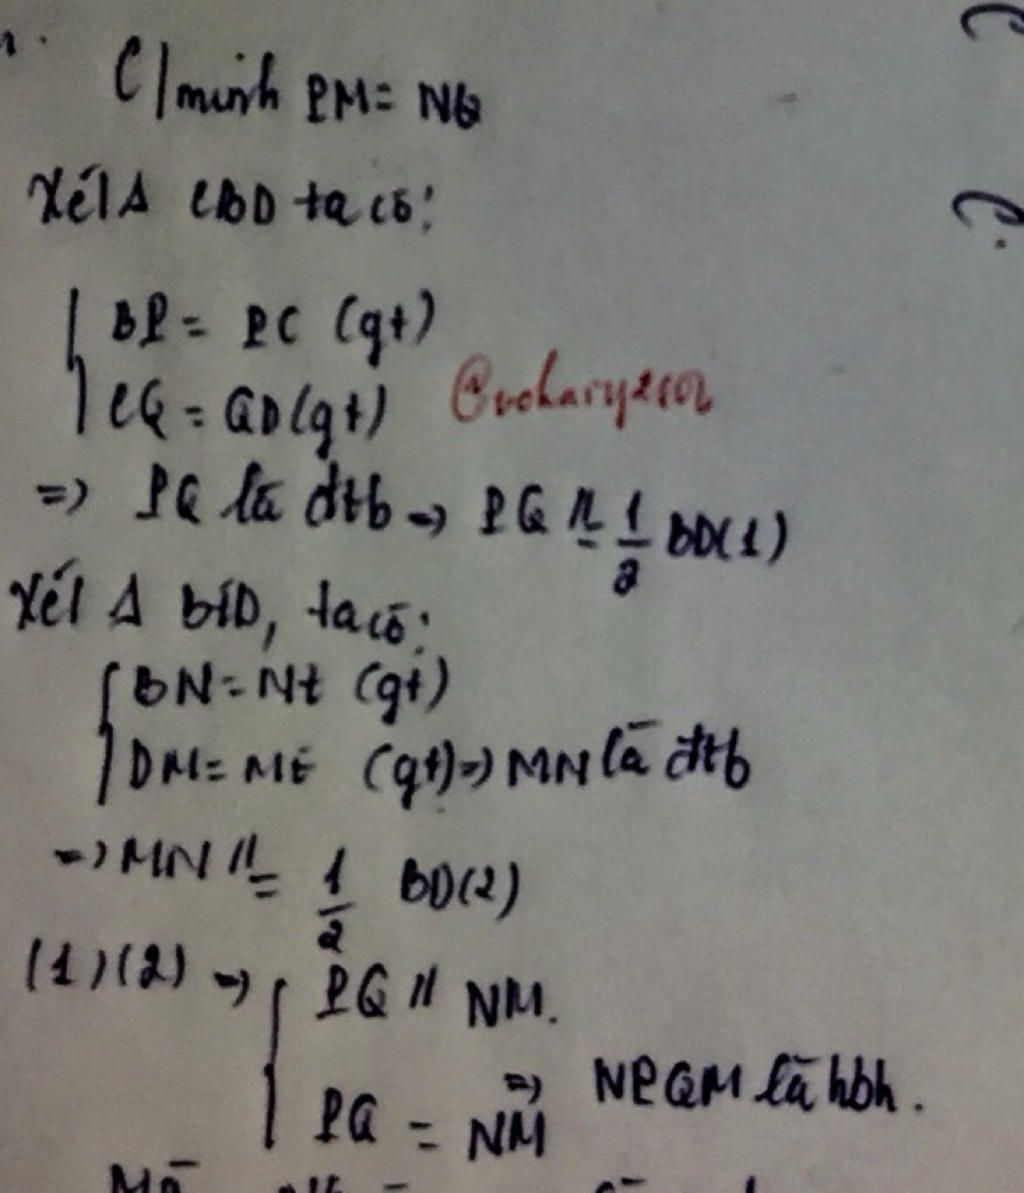 C/minh PM = NQ
Xét Δ CBD ta có:
BP = PC (gt)
CQ = QD (gt)
=> PQ là đtb => PQ //= 1/2 BD (1)
Xét Δ BED, ta có:
BN = NE (gt)
DM = ME (gt) => MN là đtb
=> MN //= 1/2 BD (2)
(1) (2) => PQ // NM.
PQ = NM => NPQM là hbh.